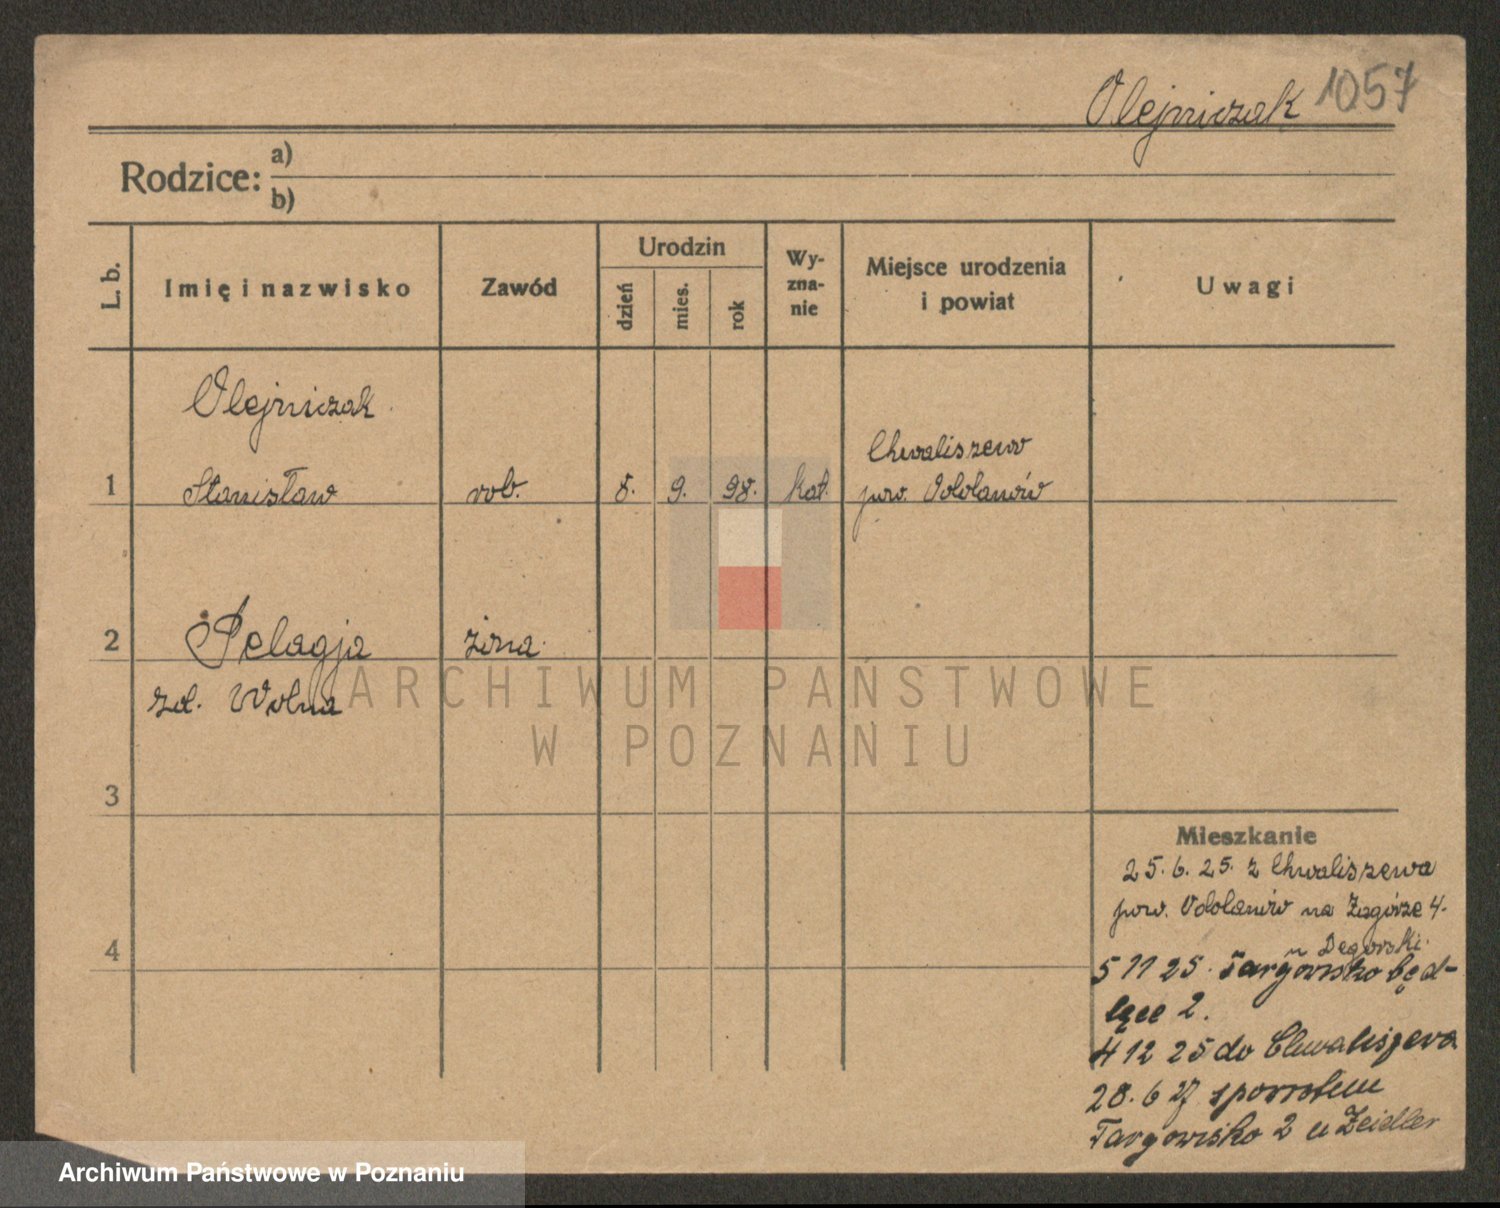 Olejniczak 1057
Rodzice: a)
b)
L. b.
Imię i nazwisko
Zawód
Urodzin
dzień
mies.
rok
Wy-
zna-
nie
Miejsce urodzenia
i powiat
Uwagi
Olejniczak
1 Stanisław rob. 8. 9. 98. kat. Chwaliszew
pow. Odolanów
2 Pelagja żona
zd. Wolna
3
4
Mieszkanie
25. 6. 25. z Chwaliszewa
pow. Odolanów na Zagórze 4.
u Degórski.
5 11 25. Targowisko będ-
lęce 2.
4 12 25 do Chwaliszewa
28. 6 27 spowrotem
Targowisko 2 u Zeidler
ARCHIWUM PAŃSTWOWE
W POZNANIU
Archiwum Państwowe w Poznaniu